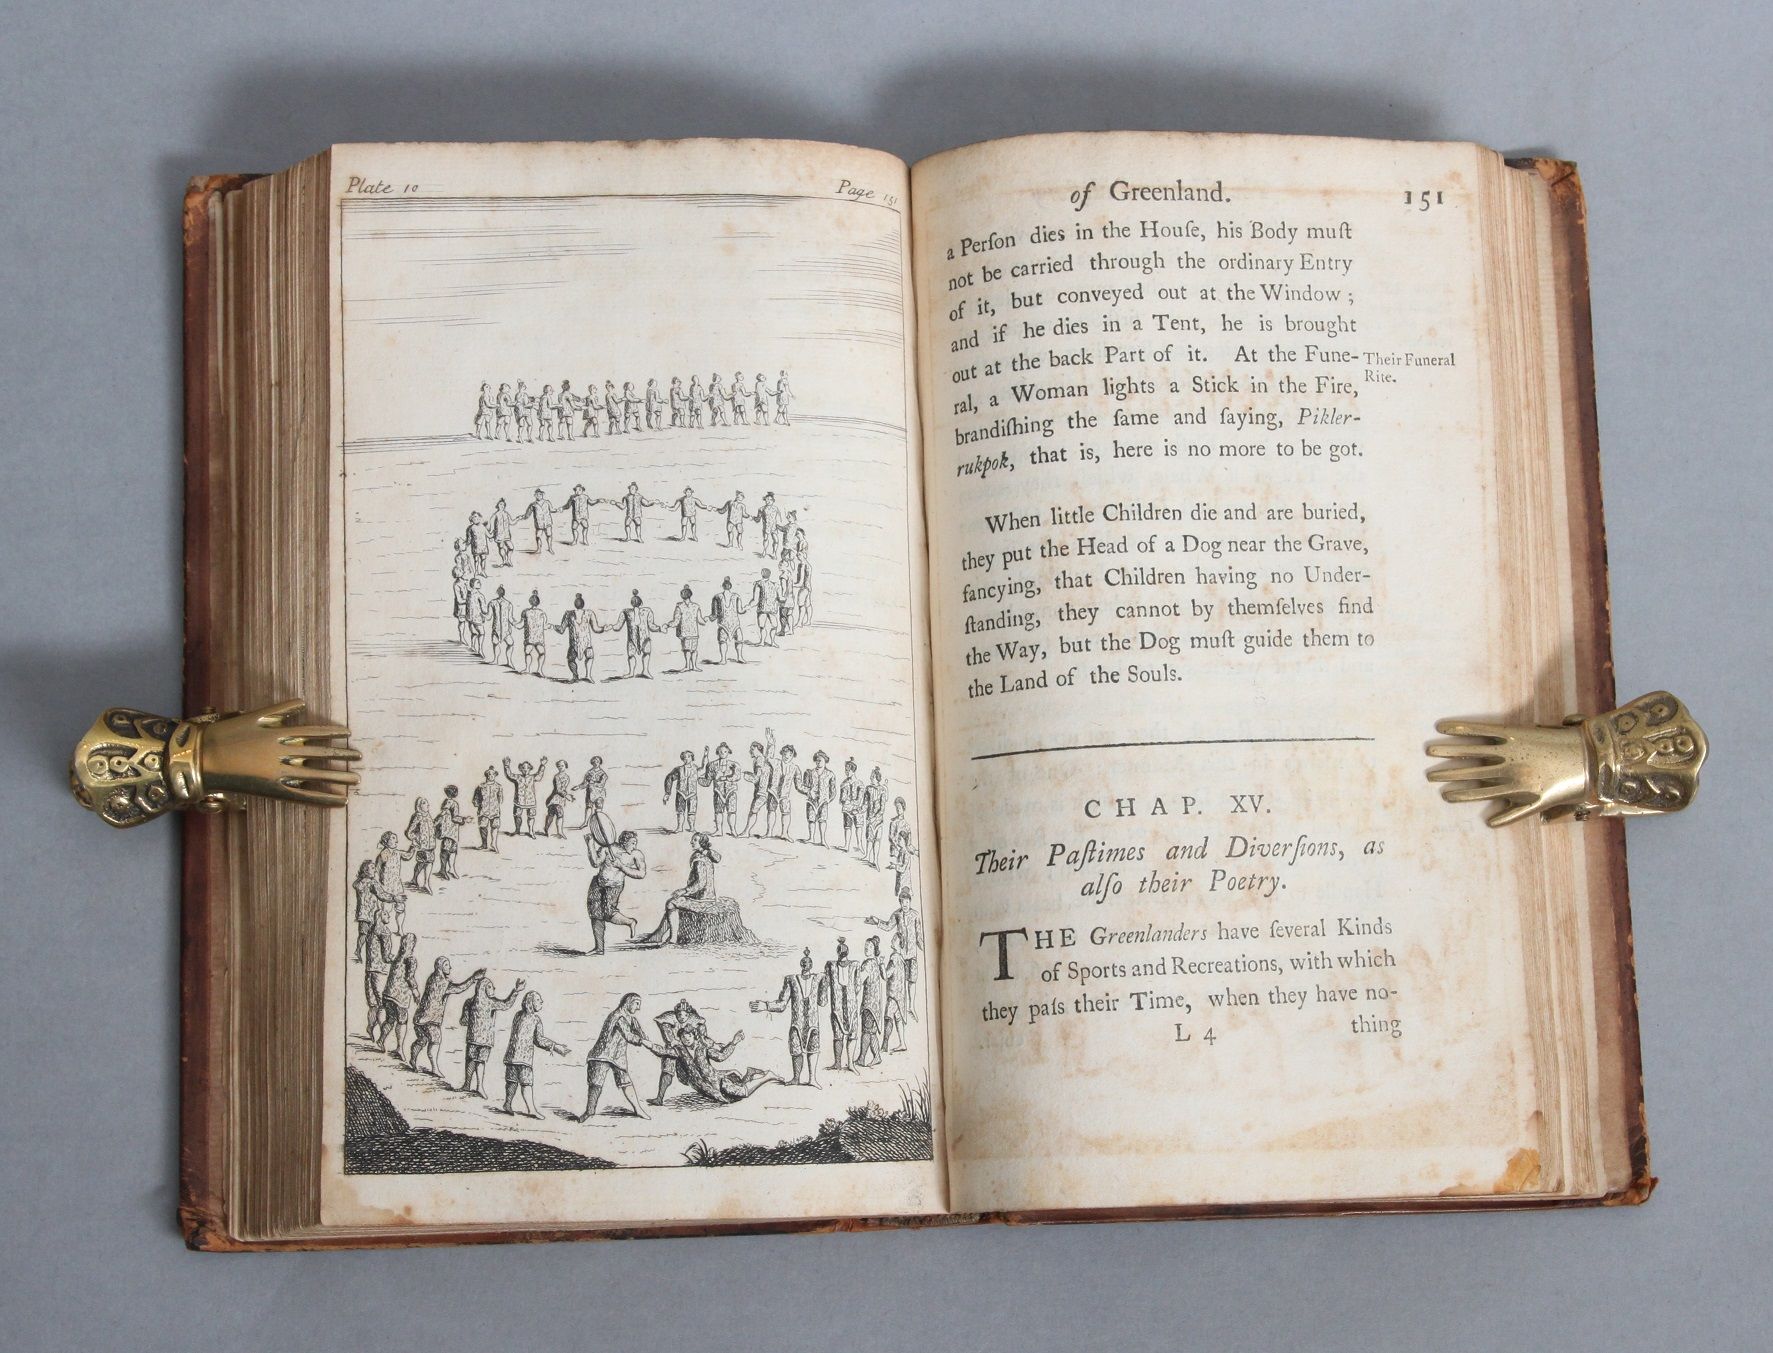 Plate 10
Page 151
of Greenland.
151
a Perſon dies in the Houſe, his Body muſt
not be carried through the ordinary Entry
of it, but conveyed out at the Window ;
and if he dies in a Tent, he is brought
out at the back Part of it. At the Fune-
ral, a Woman lights a Stick in the Fire,
brandiſhing the ſame and ſaying, Pikler-
rukpok, that is, here is no more to be got.
Their Funeral
Rite.
When little Children die and are buried,
they put the Head of a Dog near the Grave,
fancying, that Children having no Under-
ſtanding, they cannot by themſelves find
the Way, but the Dog muſt guide them to
the Land of the Souls.
CHAP. XV.
Their Paſtimes and Diverſions, as
alſo their Poetry.
THE Greenlanders have ſeveral Kinds
of Sports and Recreations, with which
they paſs their Time, when they have no-
L 4
thing